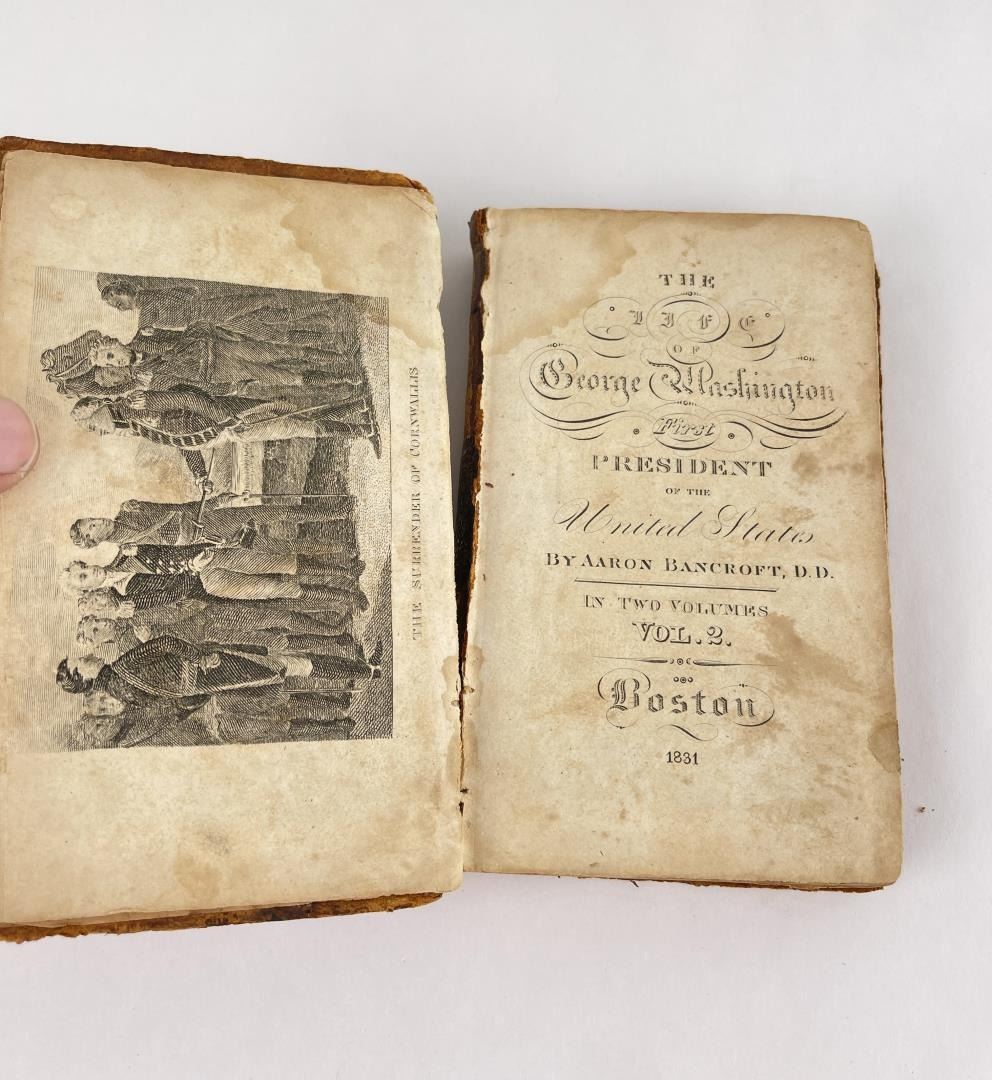 THE SURRENDER OF CORNWALLIS
THE
LIFE
OF
George Washington
First
PRESIDENT
OF THE
United States
BY AARON BANCROFT, D.D.
IN TWO VOLUMES
VOL. 2.
Boston
1831